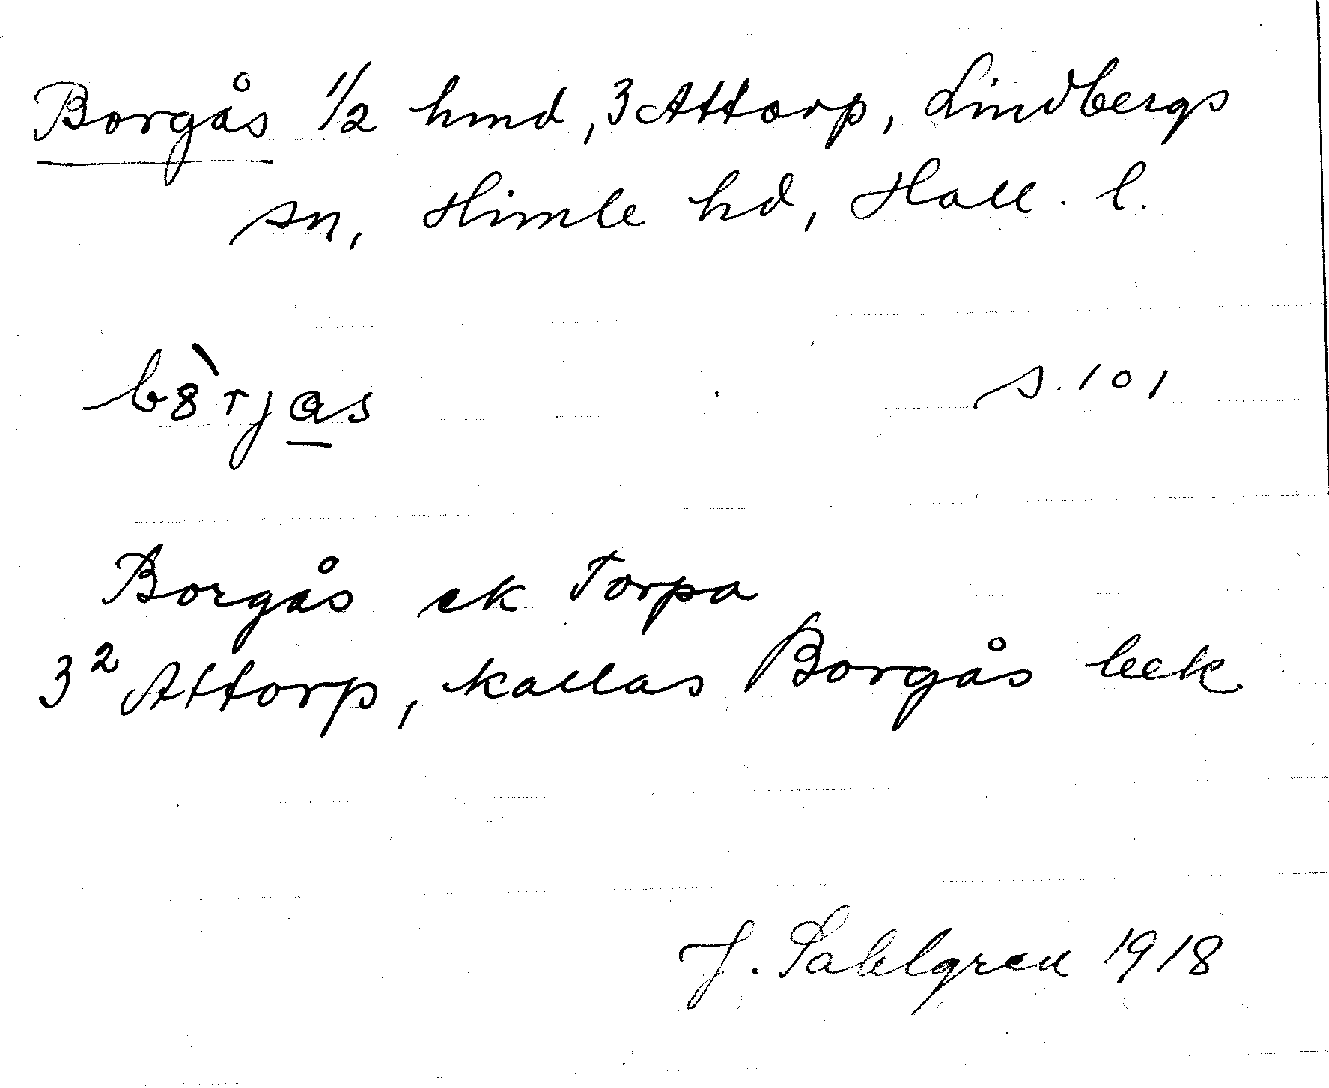 Borgås 1/2 hmd, 3 Attorp, Lindbergs
sn, Himle hd, Hall. l.
b8̀rjas s. 101
Borgås ek Torpa
3² Attorp, kallas Borgås bek
J. Sahlgren 1918